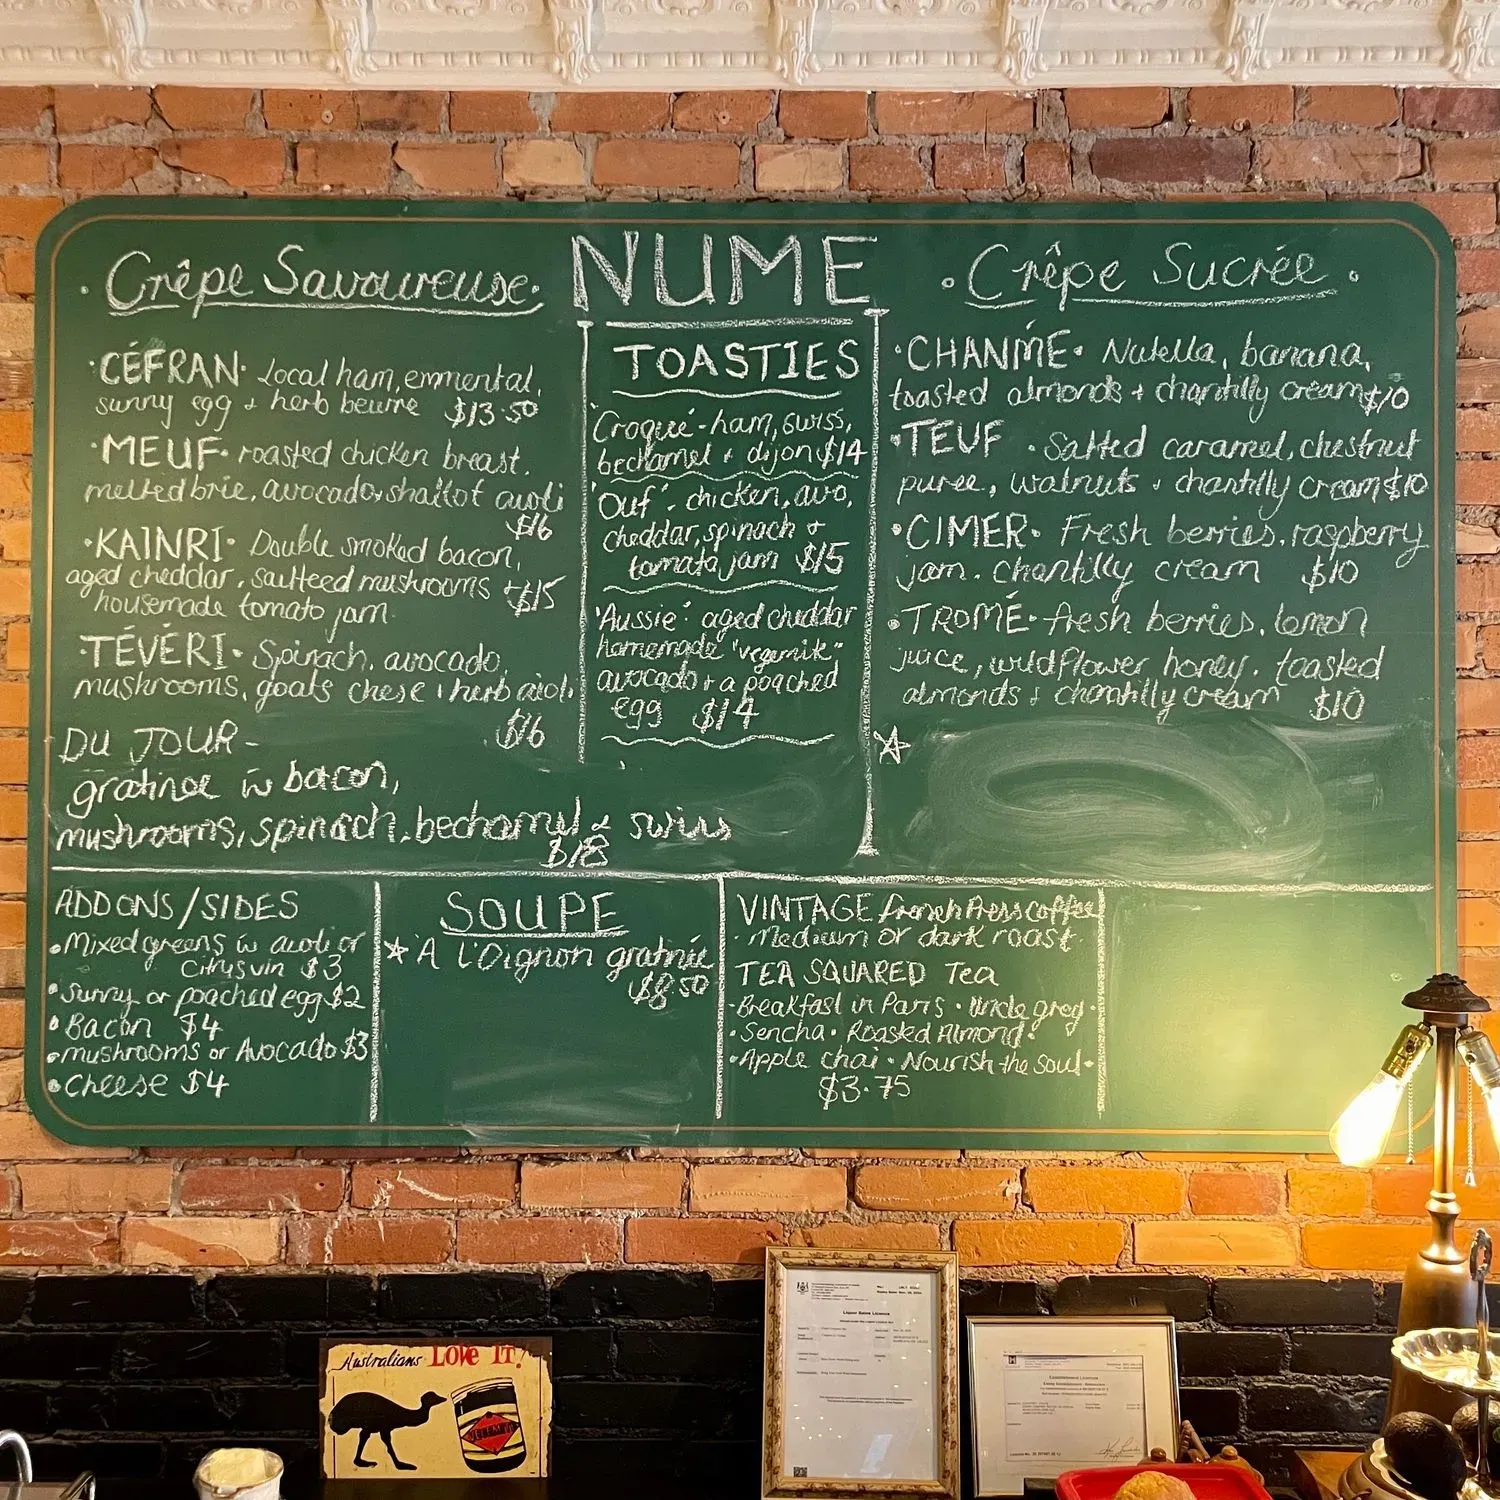 NUME
· Crêpe Savoureuse ·
· CÉFRAN · Local ham, emmental,
sunny egg + herb beurre $13.50
· MEUF · roasted chicken breast,
melted brie, avocado + shallot aioli
$16
· KAINRI · Double smoked bacon,
aged cheddar, sautteed mushrooms +
housemade tomato jam $15
· TÉVÉRI · Spinach, avocado,
mushrooms, goats chese + herb aioli
$16
DU JOUR -
gratinee w bacon,
mushrooms, spinach, bechamel & swiss
$18
TOASTIES
'Croque' - ham, swiss,
bechamel + dijon $14
'Ouf': chicken, avo,
cheddar, spinach +
tomato jam $15
'Aussie': aged cheddar
homemade "vegemik"
avocado + a poached
egg $14
· Crêpe Sucrée ·
· CHANMÉ · Nutella, banana,
toasted almonds + chantilly cream $10
· TEUF · Salted caramel, chestnut
puree, walnuts + chantilly cream $10
· CIMER · Fresh berries, raspberry
jam, chantilly cream $10
· TROMÉ · fresh berries, lemon
juice, wildflower honey, toasted
almonds + chantilly cream $10
ADDONS/SIDES
· Mixed greens w aioli or
citrus vin $3
· Sunny or poached egg $2
· Bacon $4
· mushrooms or Avocado $3
· Cheese $4
SOUPE
À l'Oignon gratinée
$8.50
VINTAGE French Press coffee
· Medium or dark roast
TEA SQUARED Tea
· Breakfast in Paris · Uncle greg ·
· Sencha · Roasted Almond ·
· Apple chai · Nourish the soul ·
$3.75
Australians LOVE IT!
Liquor Sales Licence